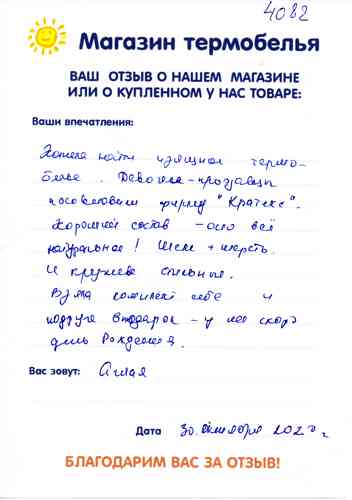 4082
Магазин термобелья
ВАШ ОТЗЫВ О НАШЕМ МАГАЗИНЕ
ИЛИ О КУПЛЕННОМ У НАС ТОВАРЕ:
Ваши впечатления:
Хотела найти изящное термо-
белье. Девочки-продавцы
посоветовали фирму "Кратекс".
Хороший состав - оно всё
натуральное! Шелк + шерсть.
И кружево стильное.
Взяла комплект себе и
подруге в подарок - у нее скоро
день Рождения.
Вас зовут: Аглая
Дата 30 октября 2020 г
БЛАГОДАРИМ ВАС ЗА ОТЗЫВ!